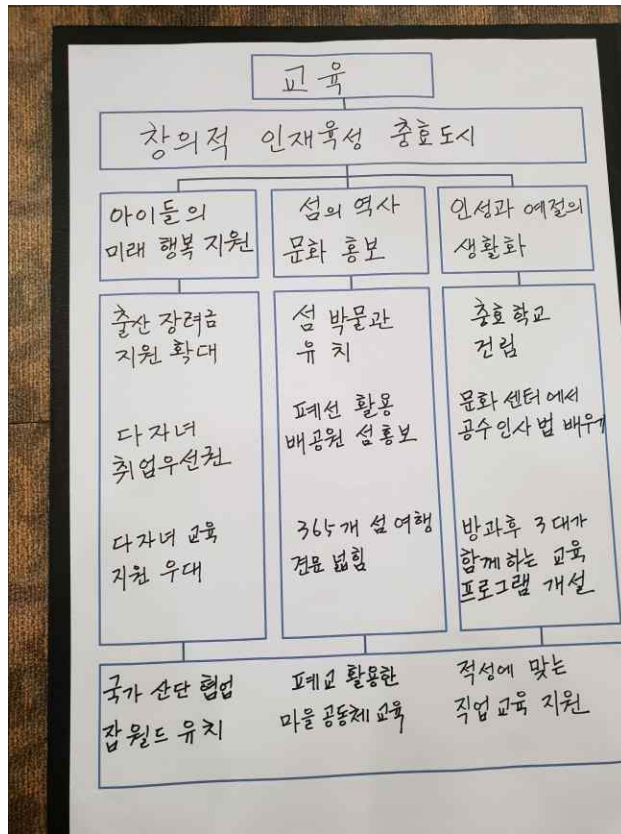 교육
창의적 인재육성 충효도시
아이들의
미래 행복 지원
섬의 역사
문화 홍보
인성과 예절의
생활화
출산 장려금
지원 확대
다자녀
취업우선권
다자녀 교육
지원 우대
섬 박물관
유치
폐선 활용
배공원 섬홍보
365개 섬 여행
견문 넓힘
충효학교
건립
문화 센터에서
공수인사법 배우기
방과후 3대가
함께하는 교육
프로그램 개설
국가 산단 협업
잡월드 유치
폐교 활용한
마을공동체 교육
적성에 맞는
직업교육 지원